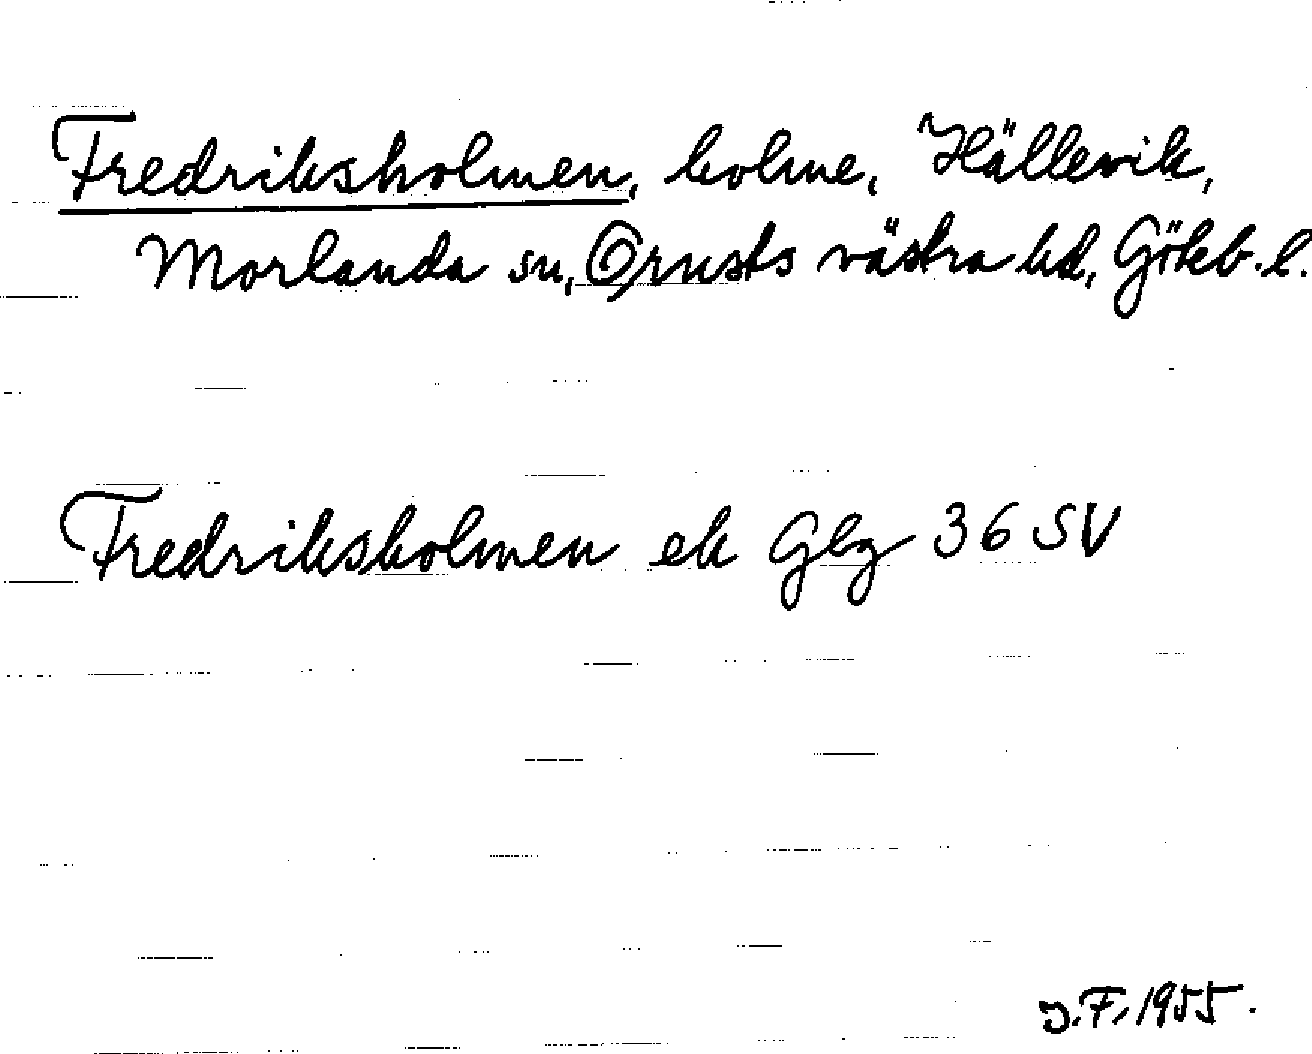 Fredriksholmen, holme, Hällevik,
Morlanda sn, Orusts västra hd, Göteb. l.
Fredriksholmen ek Gbg 36 SV
J.F. 1955.